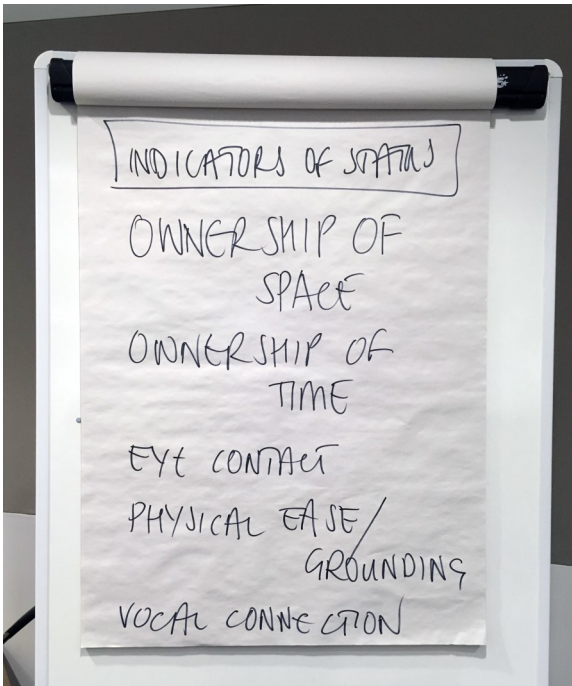 INDICATORS OF STATUS
OWNERSHIP OF
SPACE
OWNERSHIP OF
TIME
EYE CONTACT
PHYSICAL EASE/
GROUNDING
VOCAL CONNECTION